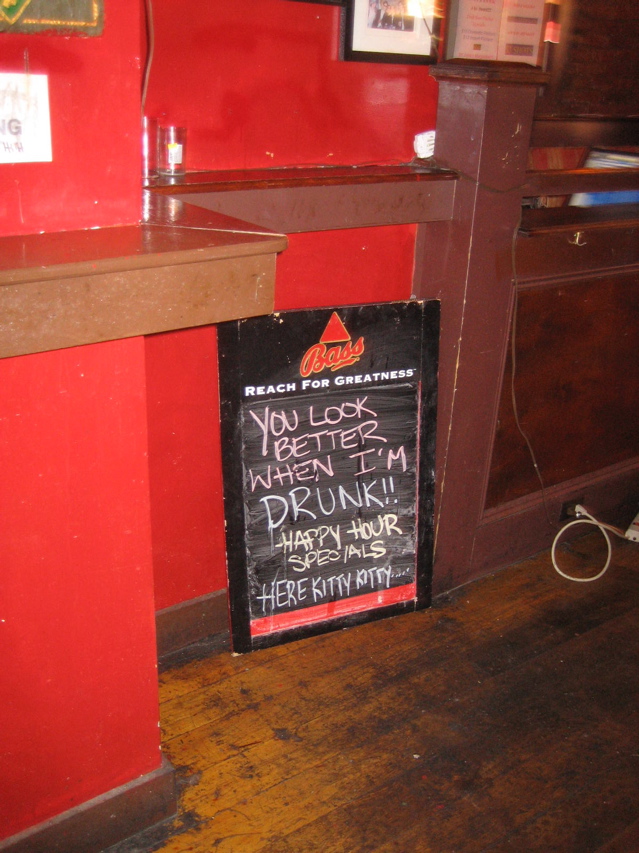 NG
Bass
REACH FOR GREATNESS
YOU LOOK
BETTER
WHEN I'M
DRUNK!!
HAPPY HOUR
SPECIALS
HERE KITTY KITTY....